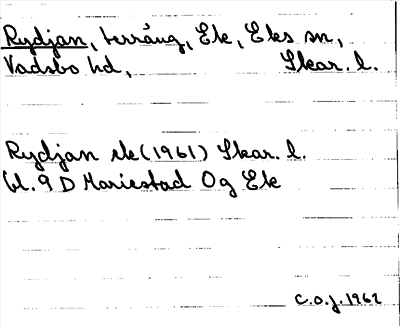 Rydjan, terräng, Ek, Eks sn,
Vadsbo hd, Skar. l.
Rydjan ek (1961) Skar. l.
bl. 9 D Mariestad Og Ek
C.O.J. 1962